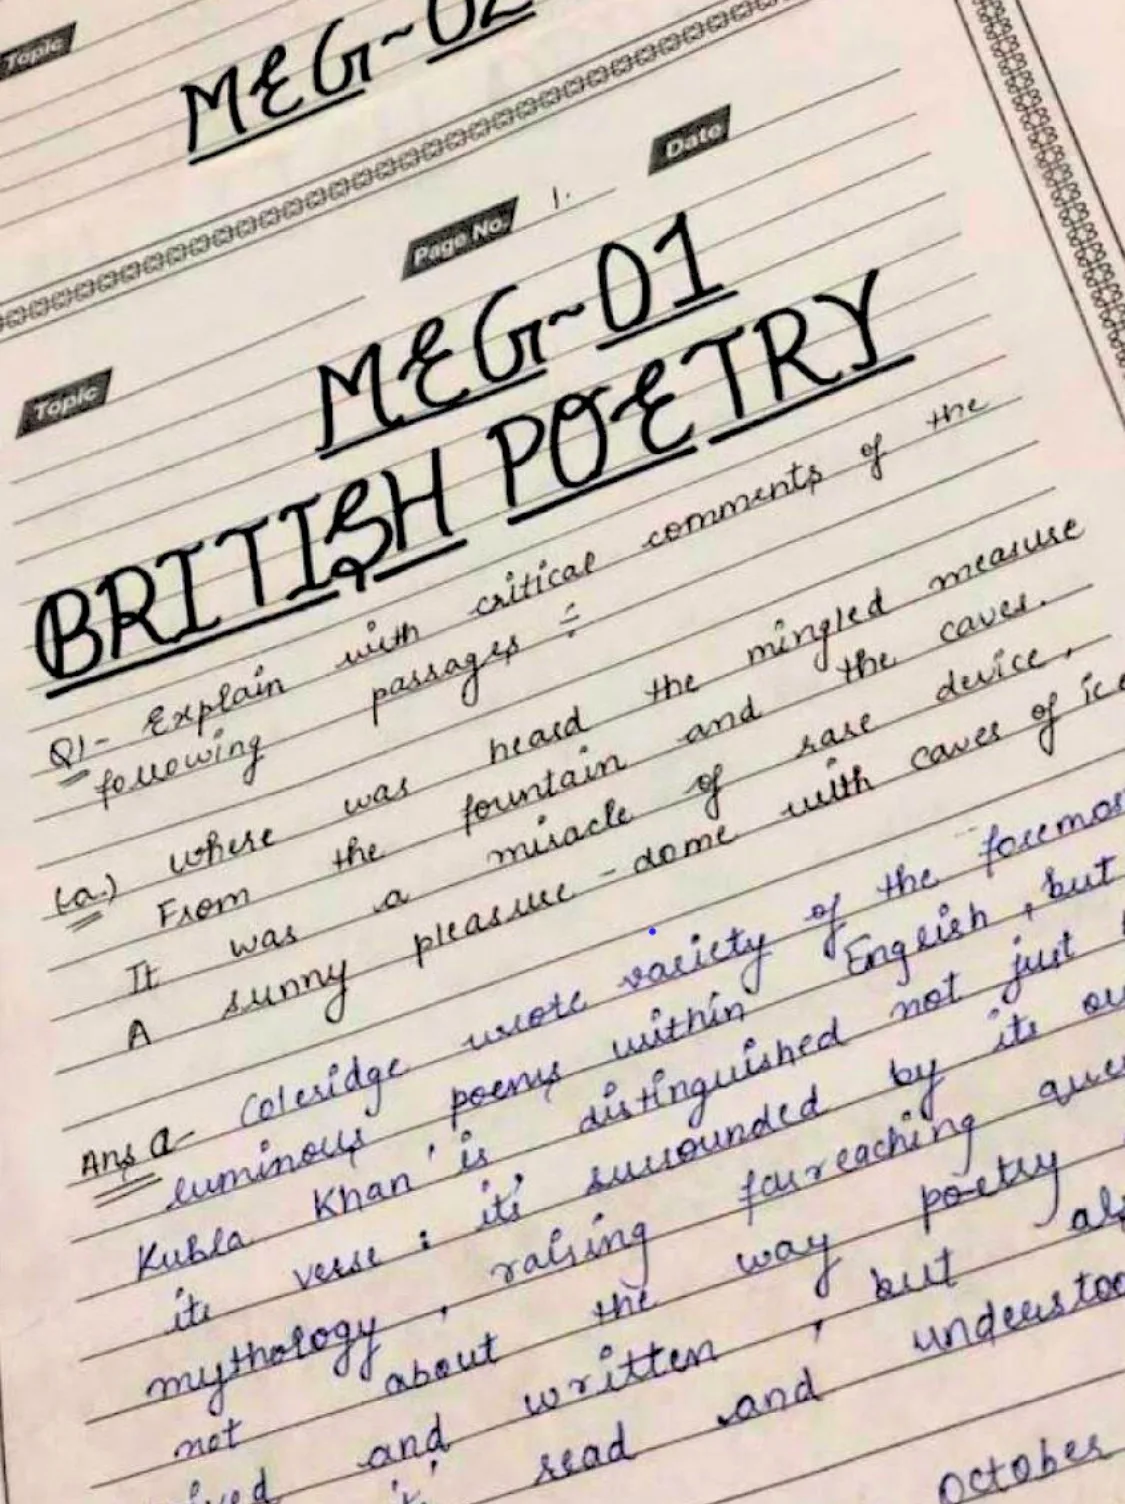 Topic
MEG-02
Page No. 1.
Date
Topic
MEG-01
BRITISH POETRY
Q1- Explain with critical comments of the
following passages ÷
(a.) where was heard the mingled measure
From the fountain and the caves.
It was a miracle of rare device,
A sunny pleasure-dome with caves of ice
Ans a- Coleridge wrote variety of the foremos
luminous poems within English, but
Kubla Khan' is distinguished not just
its verse : it's surrounded by its ow
mythology, raising farreaching ques
not about the way poetry
and written, but als
read and understoo
October